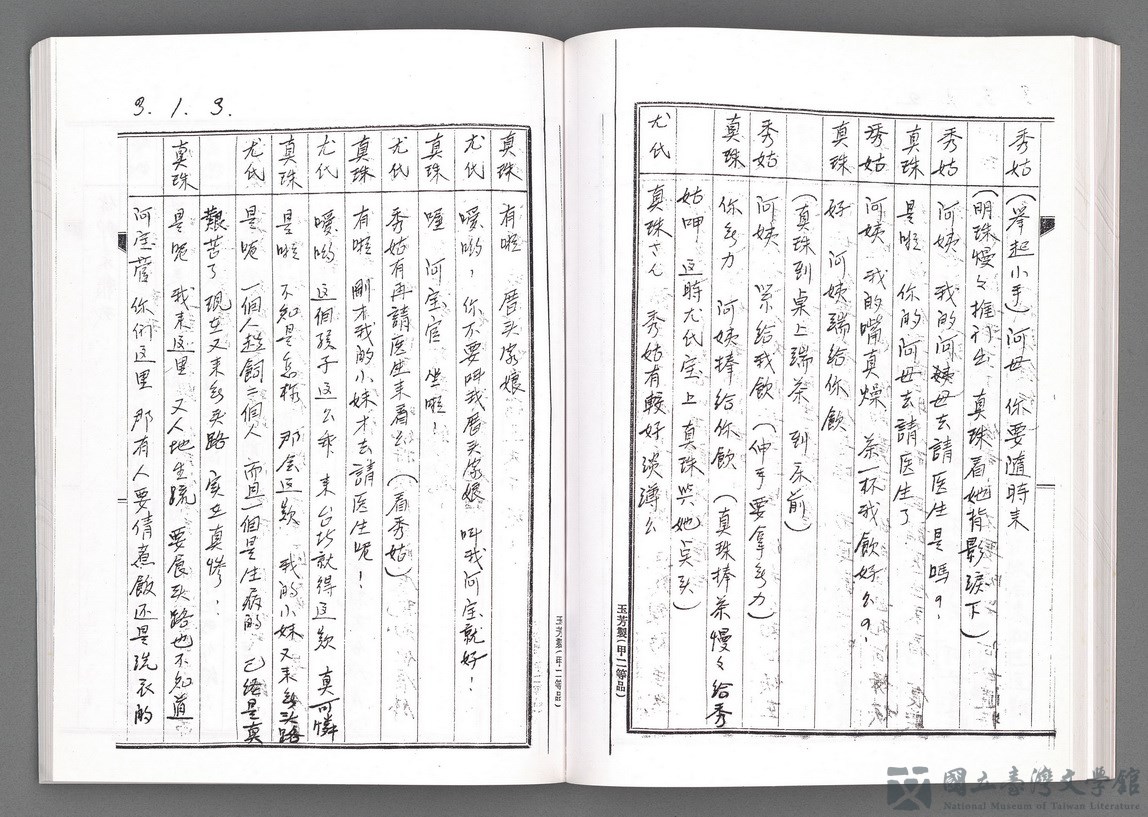 秀姑 (举起小手) 阿母 你要隨時来
(明珠慢々推刊出 真珠看她背影淚下)
秀姑 阿姨 我的阿母去請医生是嗎?
真珠 是啦 你的阿母去請医生了
秀姑 阿姨 我的嘴真燥 茶一杯我飲好么?
真珠 好 阿姨端給你飲
(真珠到桌上端茶 到床前)
秀姑 阿姨 給我飲 (伸手要拿無力)
真珠 你無力 阿姨捧給你飲 (真珠捧茶慢々給秀
姑呷 这時尤氏宝上 真珠与她点头)
尤氏 真珠さん 秀姑有較好淡薄么
3. 1. 3.
真珠 有啦 厝头家娘
尤氏 噯喲, 你不要叫我厝头家娘 叫我阿宝就好!
真珠 喔 阿宝官 坐啦!
尤氏 秀姑有再請医生来看么 (看秀姑)
真珠 有啦 剛才我的小妹才去請医生呢!
尤氏 噯喲 这個孩子这么乖 来台北就得这款 真可憐
真珠 是啦 不知是怎样 那会这款 我的小妹又未無头路
尤氏 是呢 一個人趁飼三個人 而且一個是生病的 已経是真
艱苦了 現在又来無头路 実在真惨!
真珠 是呢 我来这里 又人地生疏 要食头路也不知道
阿宝菅 你们这里 那有人要倩煮飯还是洗衣的
玉芳製(甲二等品)
玉芳製(甲二等品)
國立臺灣文學館
National Museum of Taiwan Literature